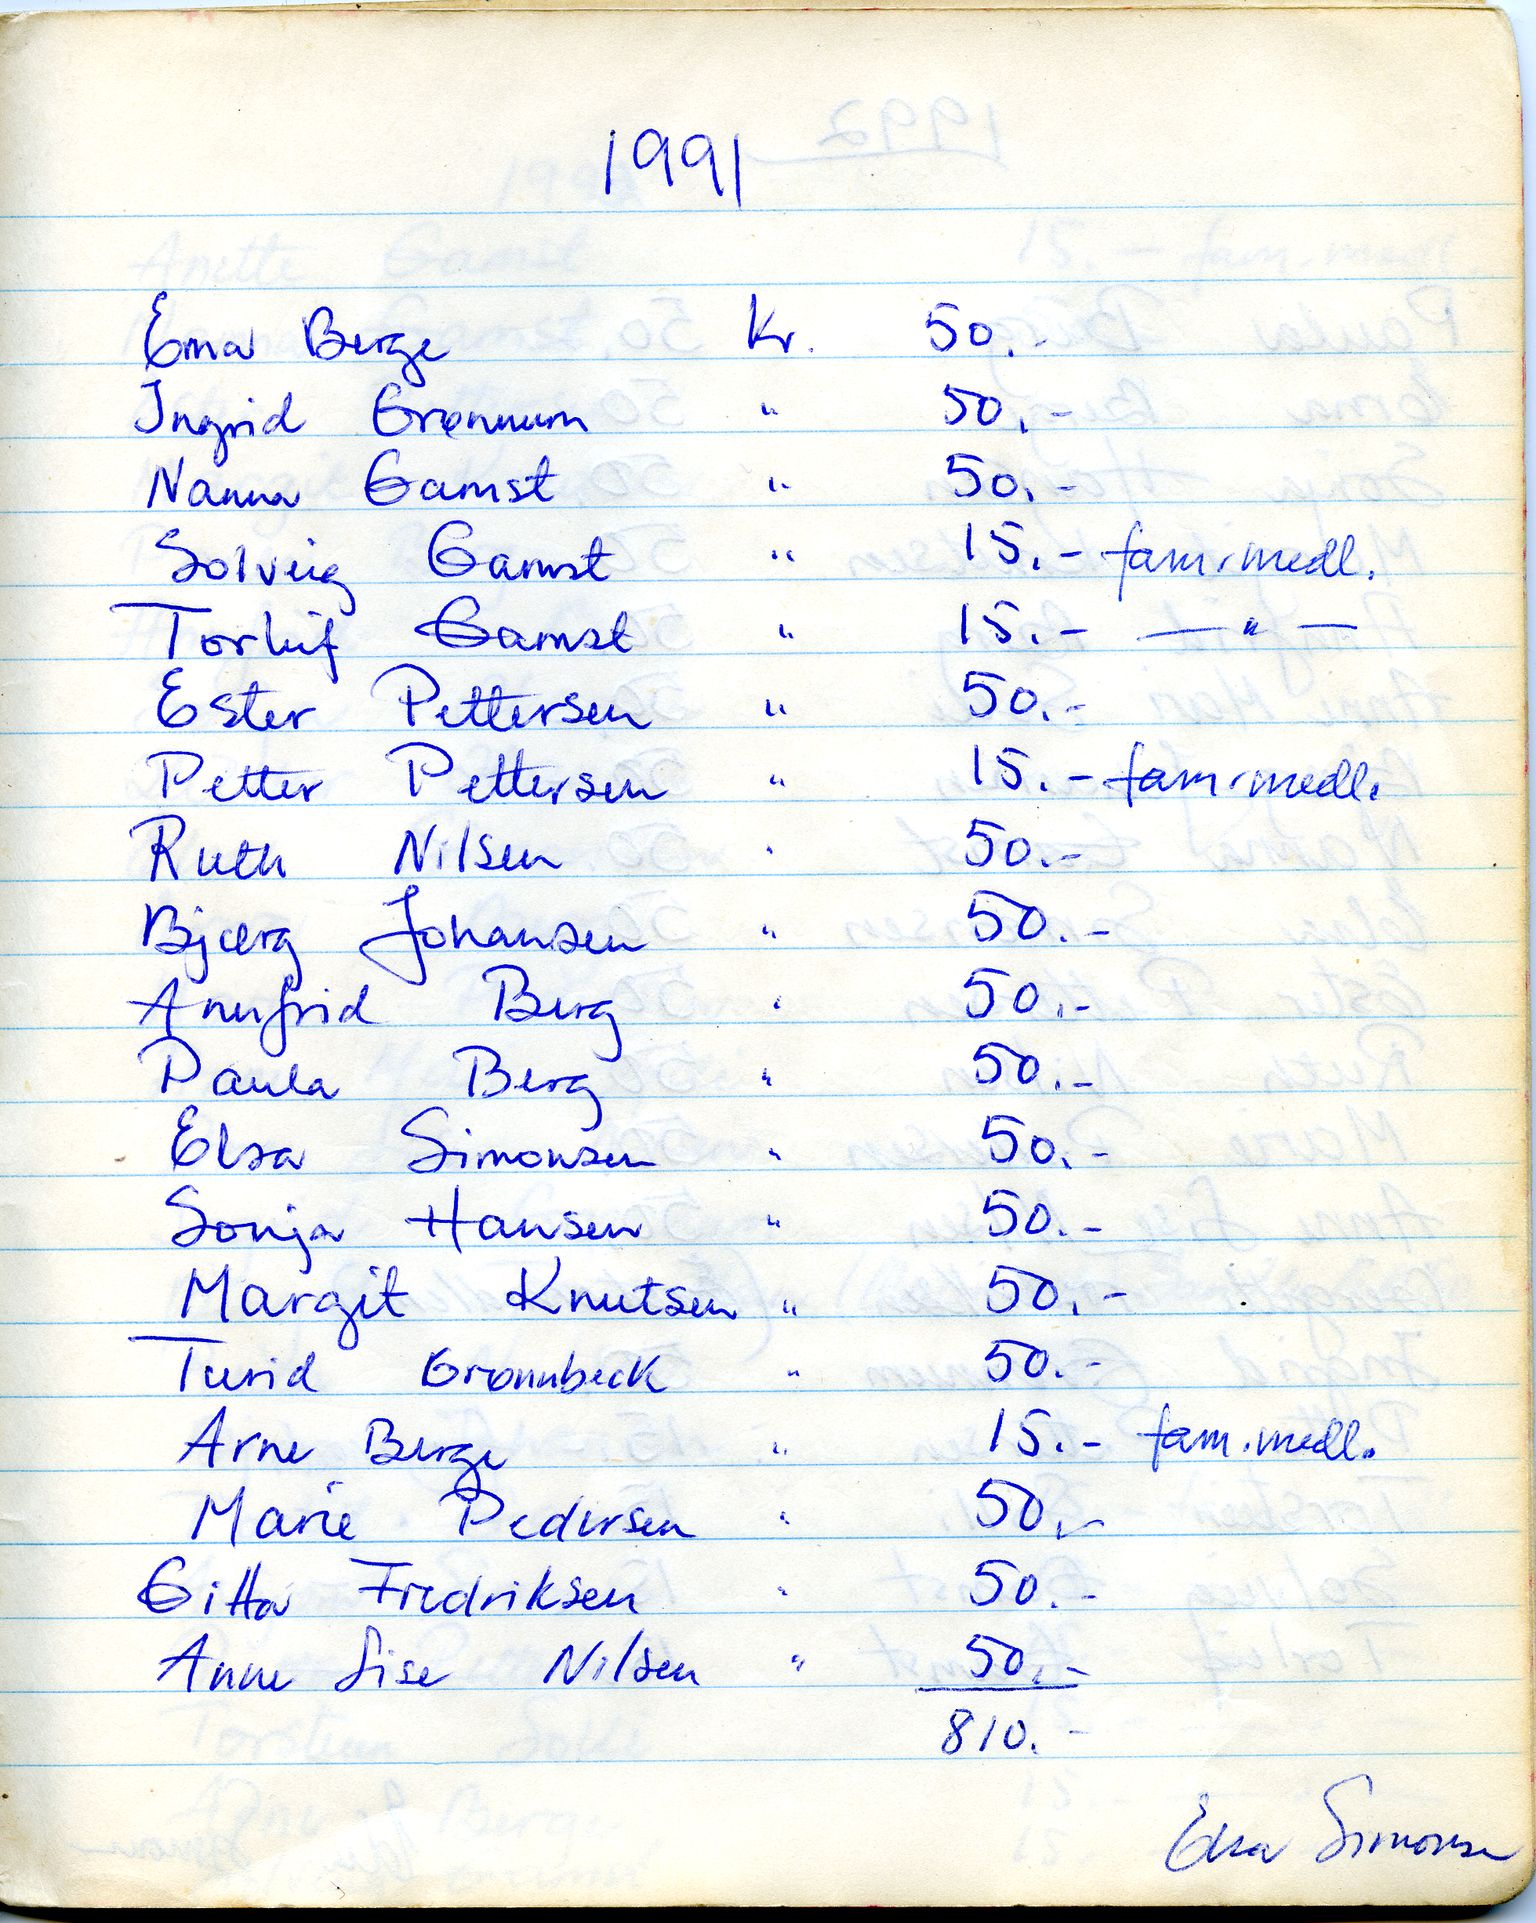 1991
Erna Berge Kr. 50.-
Ingrid Grønnum " 50.-
Nanna Gamst " 50.-
Solveig Gamst " 15.- fam.medl.
Torleif Gamst " 15.- — " —
Ester Pettersen " 50.-
Petter Pettersen " 15.- fam.medl.
Ruth Nilsen " 50.-
Bjørg Johansen " 50.-
Annfrid Berg " 50.-
Paula Berg " 50.-
Elsa Simonsen " 50.-
Sonja Hansen " 50.-
Margit Knutsen " 50.-
Turid Grønnbeck " 50.-
Arne Berge " 15.- fam.medl.
Marie Pedersen " 50.-
Gitta Fredriksen " 50.-
Anne Lise Nilsen " 50.-
810.-
Elsa Simonsen